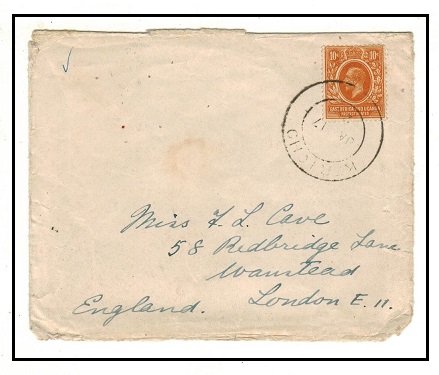 10c 10c
EAST AFRICA AND UGANDA
PROTECTORATES
KERICHO
JA
17
Miss F. L. Cave
58 Redbridge Lane
Wanstead
London E. 11.
England.